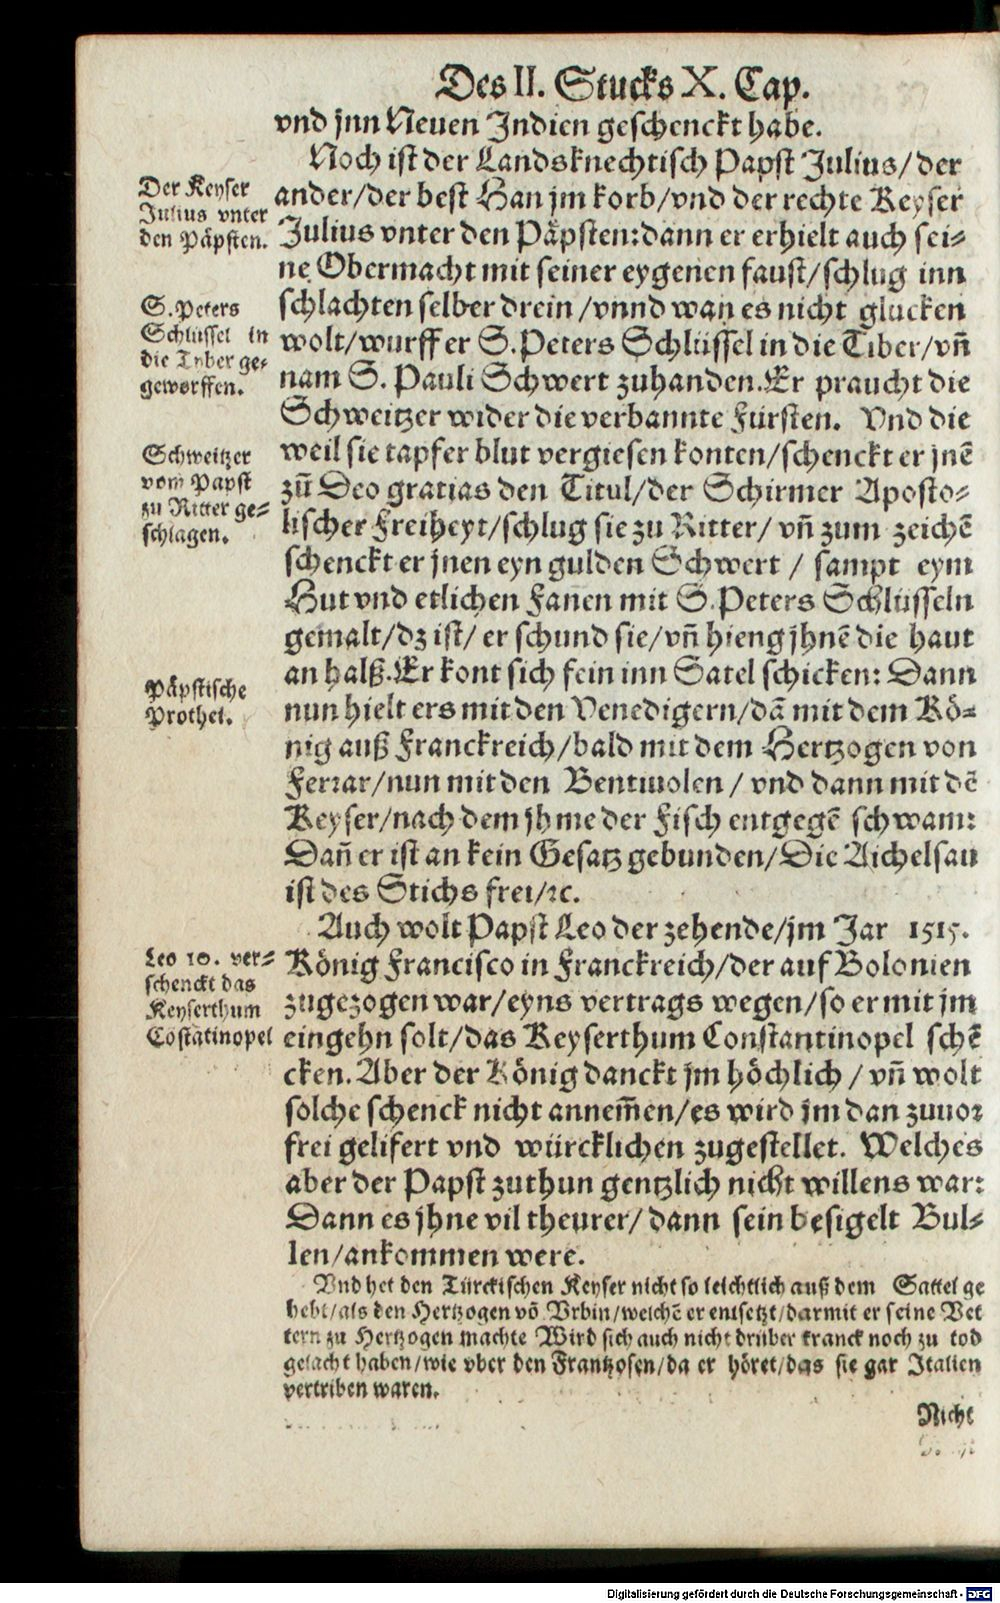 Des II. Stucks X. Cap.
vnd jnn Neuen Indien geschenckt habe.
Noch ist der Landsknechtisch Papst Julius/ der
ander/der best Han jm korb/vnd der rechte Keyser
Julius vnter den Päpsten:dann er erhielt auch sei-
ne Obermacht mit seiner eygenen faust/schlug inn
schlachten selber drein /vnnd wan es nicht glucken
wolt/wurff er S.Peters Schlüssel in die Tiber/vñ
nam S. Pauli Schwert zuhanden.Er praucht die
Schweitzer wider die verbannte Fürsten. Vnd die
weil sie tapfer blut vergiesen konten/schenckt er jnẽ
zũ Deo gratias den Titul/der Schirmer Aposto-
lischer Freiheyt/schlug sie zu Ritter/ vñ zum zeichẽ
schenckt er jnen eyn gulden Schwert / sampt eym
Hut vnd etlichen Fanen mit S.Peters Schlüsseln
gemalt/dz ist/ er schund sie/vñ hieng jhnẽ die haut
an halß.Er kont sich fein inn Satel schicken: Dann
nun hielt ers mit den Venedigern/dã mit dem Kö-
nig auß Franckreich/bald mit dem Hertzogen von
Ferrar/nun mit den Bentiuolen / vnd dann mit dẽ
Keyser/nach dem jhme der Fisch entgegẽ schwam:
Dañ er ist an kein Gesatz gebunden/Die Aichelsau
ist des Stichs frei/ꝛc.
Auch wolt Papst Leo der zehende/jm Jar 1515.
König Francisco in Franckreich/der auf Bolonien
zugezogen war/eyns vertrags wegen/so er mit jm
eingehn solt/das Keyserthum Constantinopel schẽ
cken. Aber der König danckt jm höchlich / vñ wolt
solche schenck nicht annem̃en/es wird jm dan zuuor
frei gelifert vnd würcklichen zugestellet. Welches
aber der Papst zuthun gentzlich nicht willens war:
Dann es jhne vil theurer/ dann sein besigelt Bul-
len/ankommen were.
Vnd het den Türckischen Keyser nicht so leichtlich auß dem Sattel ge
hebt/als den Hertzogen võ Vrbin/welchẽ er entsetzt/darmit er seine Vet
tern zu Hertzogen machte Wird sich auch nicht drüber kranck noch zu tod
gelacht haben/wie vber den Frantzosen/da er höret/das sie gar Italien
vertriben waren.
Nicht
Der Keyser
Julius vnter
den Päpsten.
S.Peters
Schlüssel in
die Tyber ge-
geworffen.
Schweitzer
vom Papst
zu Ritter ge-
schlagen.
Päpstische
Prothei.
Leo 10. ver-
schenckt das
Keyserthum
Cõstãtinopel
Digitalisierung gefördert durch die Deutsche Forschungsgemeinschaft - DFG